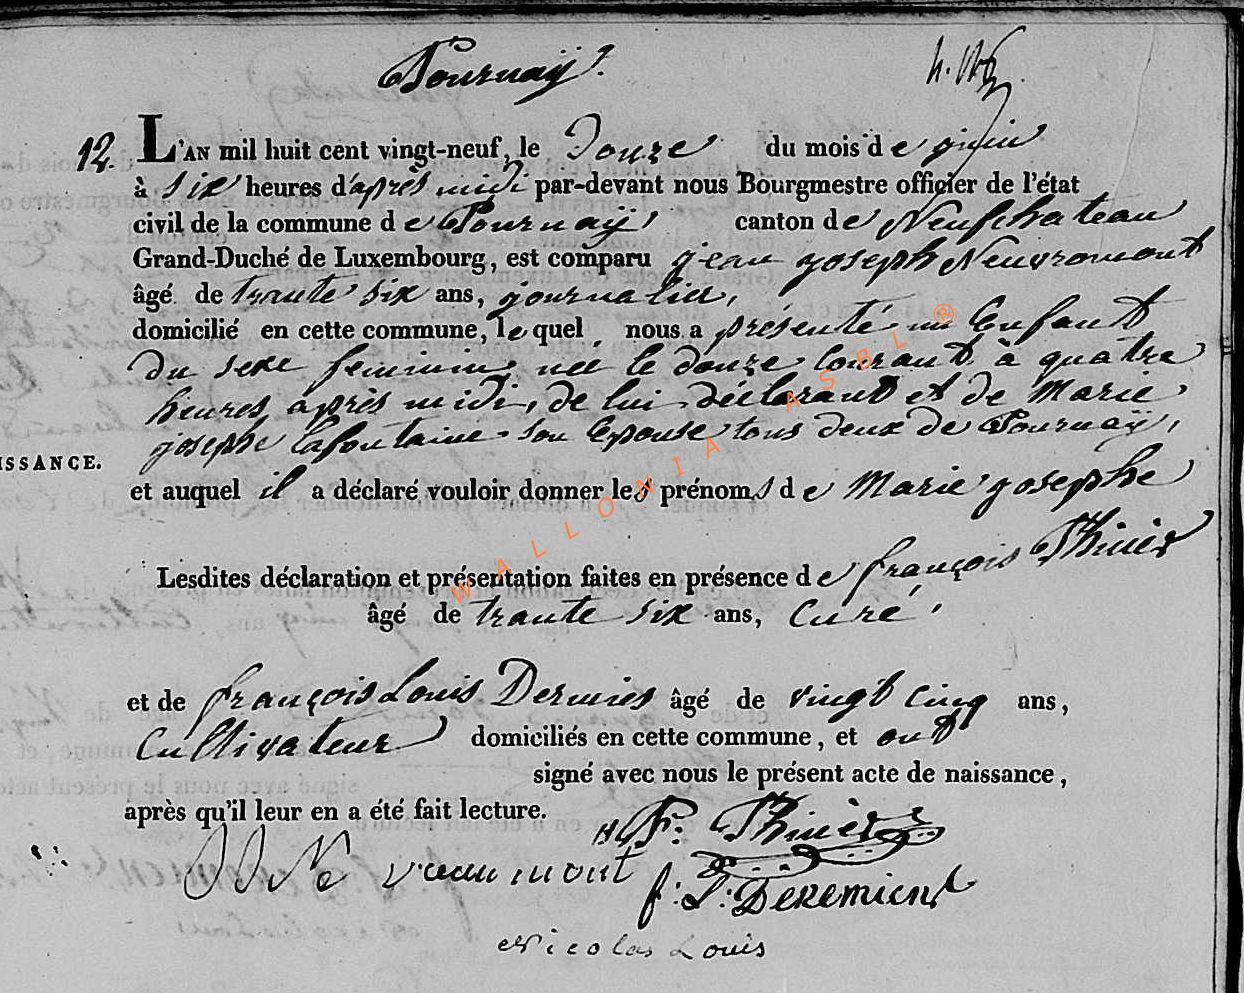 Tournaÿ.
12. L'AN mil huit cent vingt-neuf, le Douze du mois de juin
à six heures d'après midi par-devant nous Bourgmestre officier de l'état
civil de la commune de Tournaÿ, canton de Neufchateau
Grand-Duché de Luxembourg, est comparu jean joseph Neuvromont
âgé de trante six ans, journalier,
domicilié en cette commune, lequel nous a présenté un Enfant
du sexe feminin née le douze courant à quatre
heures après midi, de lui déclarant et de Marie
josephe Lafontaine son Epouse tous deux de Tournaÿ,
ISSANCE.
et auquel il a déclaré vouloir donner les prénoms de Marie josephe
Lesdites déclaration et présentation faites en présence de françois Thiner
âgé de trante six ans, Curé,
et de françois Louis Dermien âgé de vingt cinq ans,
Cultivateur domiciliés en cette commune, et ont
signé avec nous le présent acte de naissance,
après qu'il leur en a été fait lecture.
F. Thiner
JJ Ne vraumont
f. L. Deremiens
Nicolas Louis
WALLONIA ASBL ®